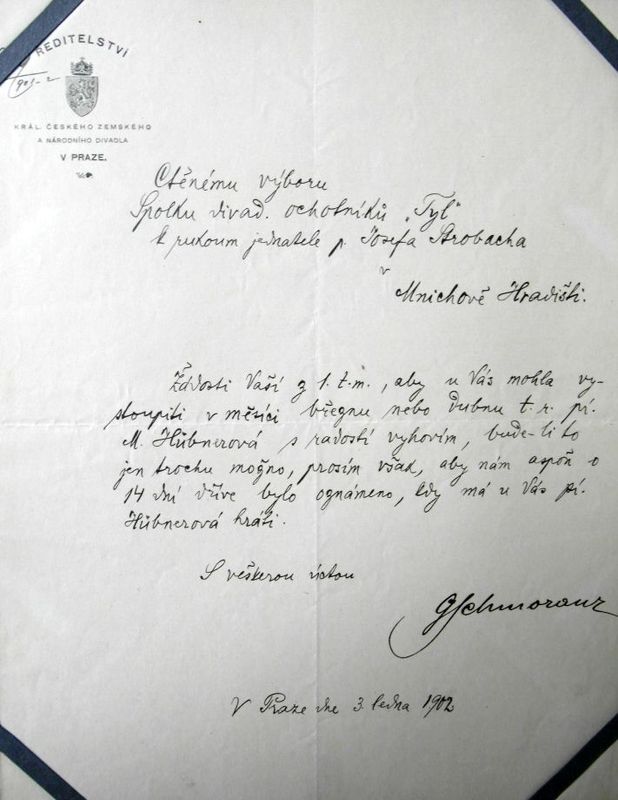 ŘEDITELSTVÍ
KRÁL. ČESKÉHO ZEMSKÉHO
A NÁRODNÍHO DIVADLA
V PRAZE.
Ctěnému výboru
Spolku divad. ochotníků „Tyl“
k rukoum jednatele p. Josefa Štrobacha
v
Mnichově Hradišti.
Žádosti Vaší z 1. t. m., aby u Vás mohla vy-
stoupiti v měsíci březnu nebo dubnu t. r. pí.
M. Hübnerová s radostí vyhovím, bude-li to
jen trochu možno, prosím však, aby nám aspoň o
14 dní dříve bylo oznámeno, kdy má u Vás pí.
Hübnerová hráti.
S veškerou úctou
GSchmoranz
V Praze dne 3. ledna 1902